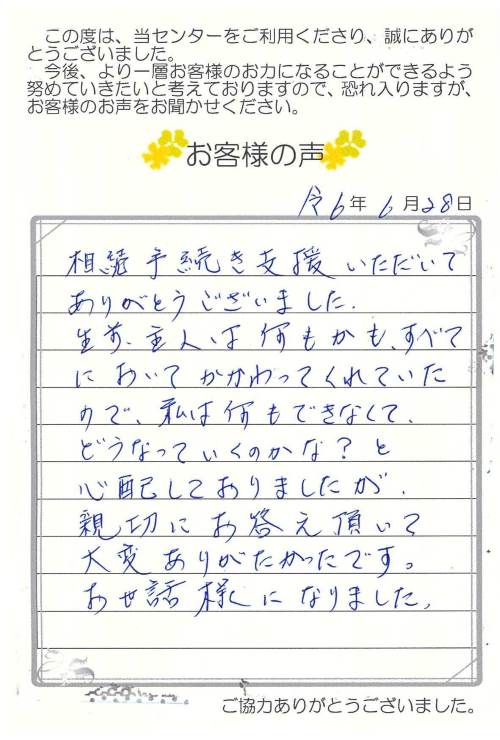 この度は、当センターをご利用くださり、誠にありが
とうございました。
今後、より一層お客様のお力になることができるよう
努めていきたいと考えておりますので、恐れ入りますが、
お客様のお声をお聞かせください。
お客様の声
令6年6月28日
相続手続き支援いただいて
ありがとうございました.
生前、主人は何もかも、すべて
においてかかわってくれていた
ので、私は何もできなくて、
どうなっていくのかな?と
心配しておりましたが、
親切にお答え頂いて
大変ありがたかったです。
お世話様になりました。
ご協力ありがとうございました。